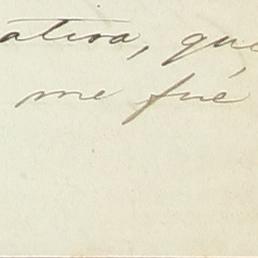 ativa, que
me fué